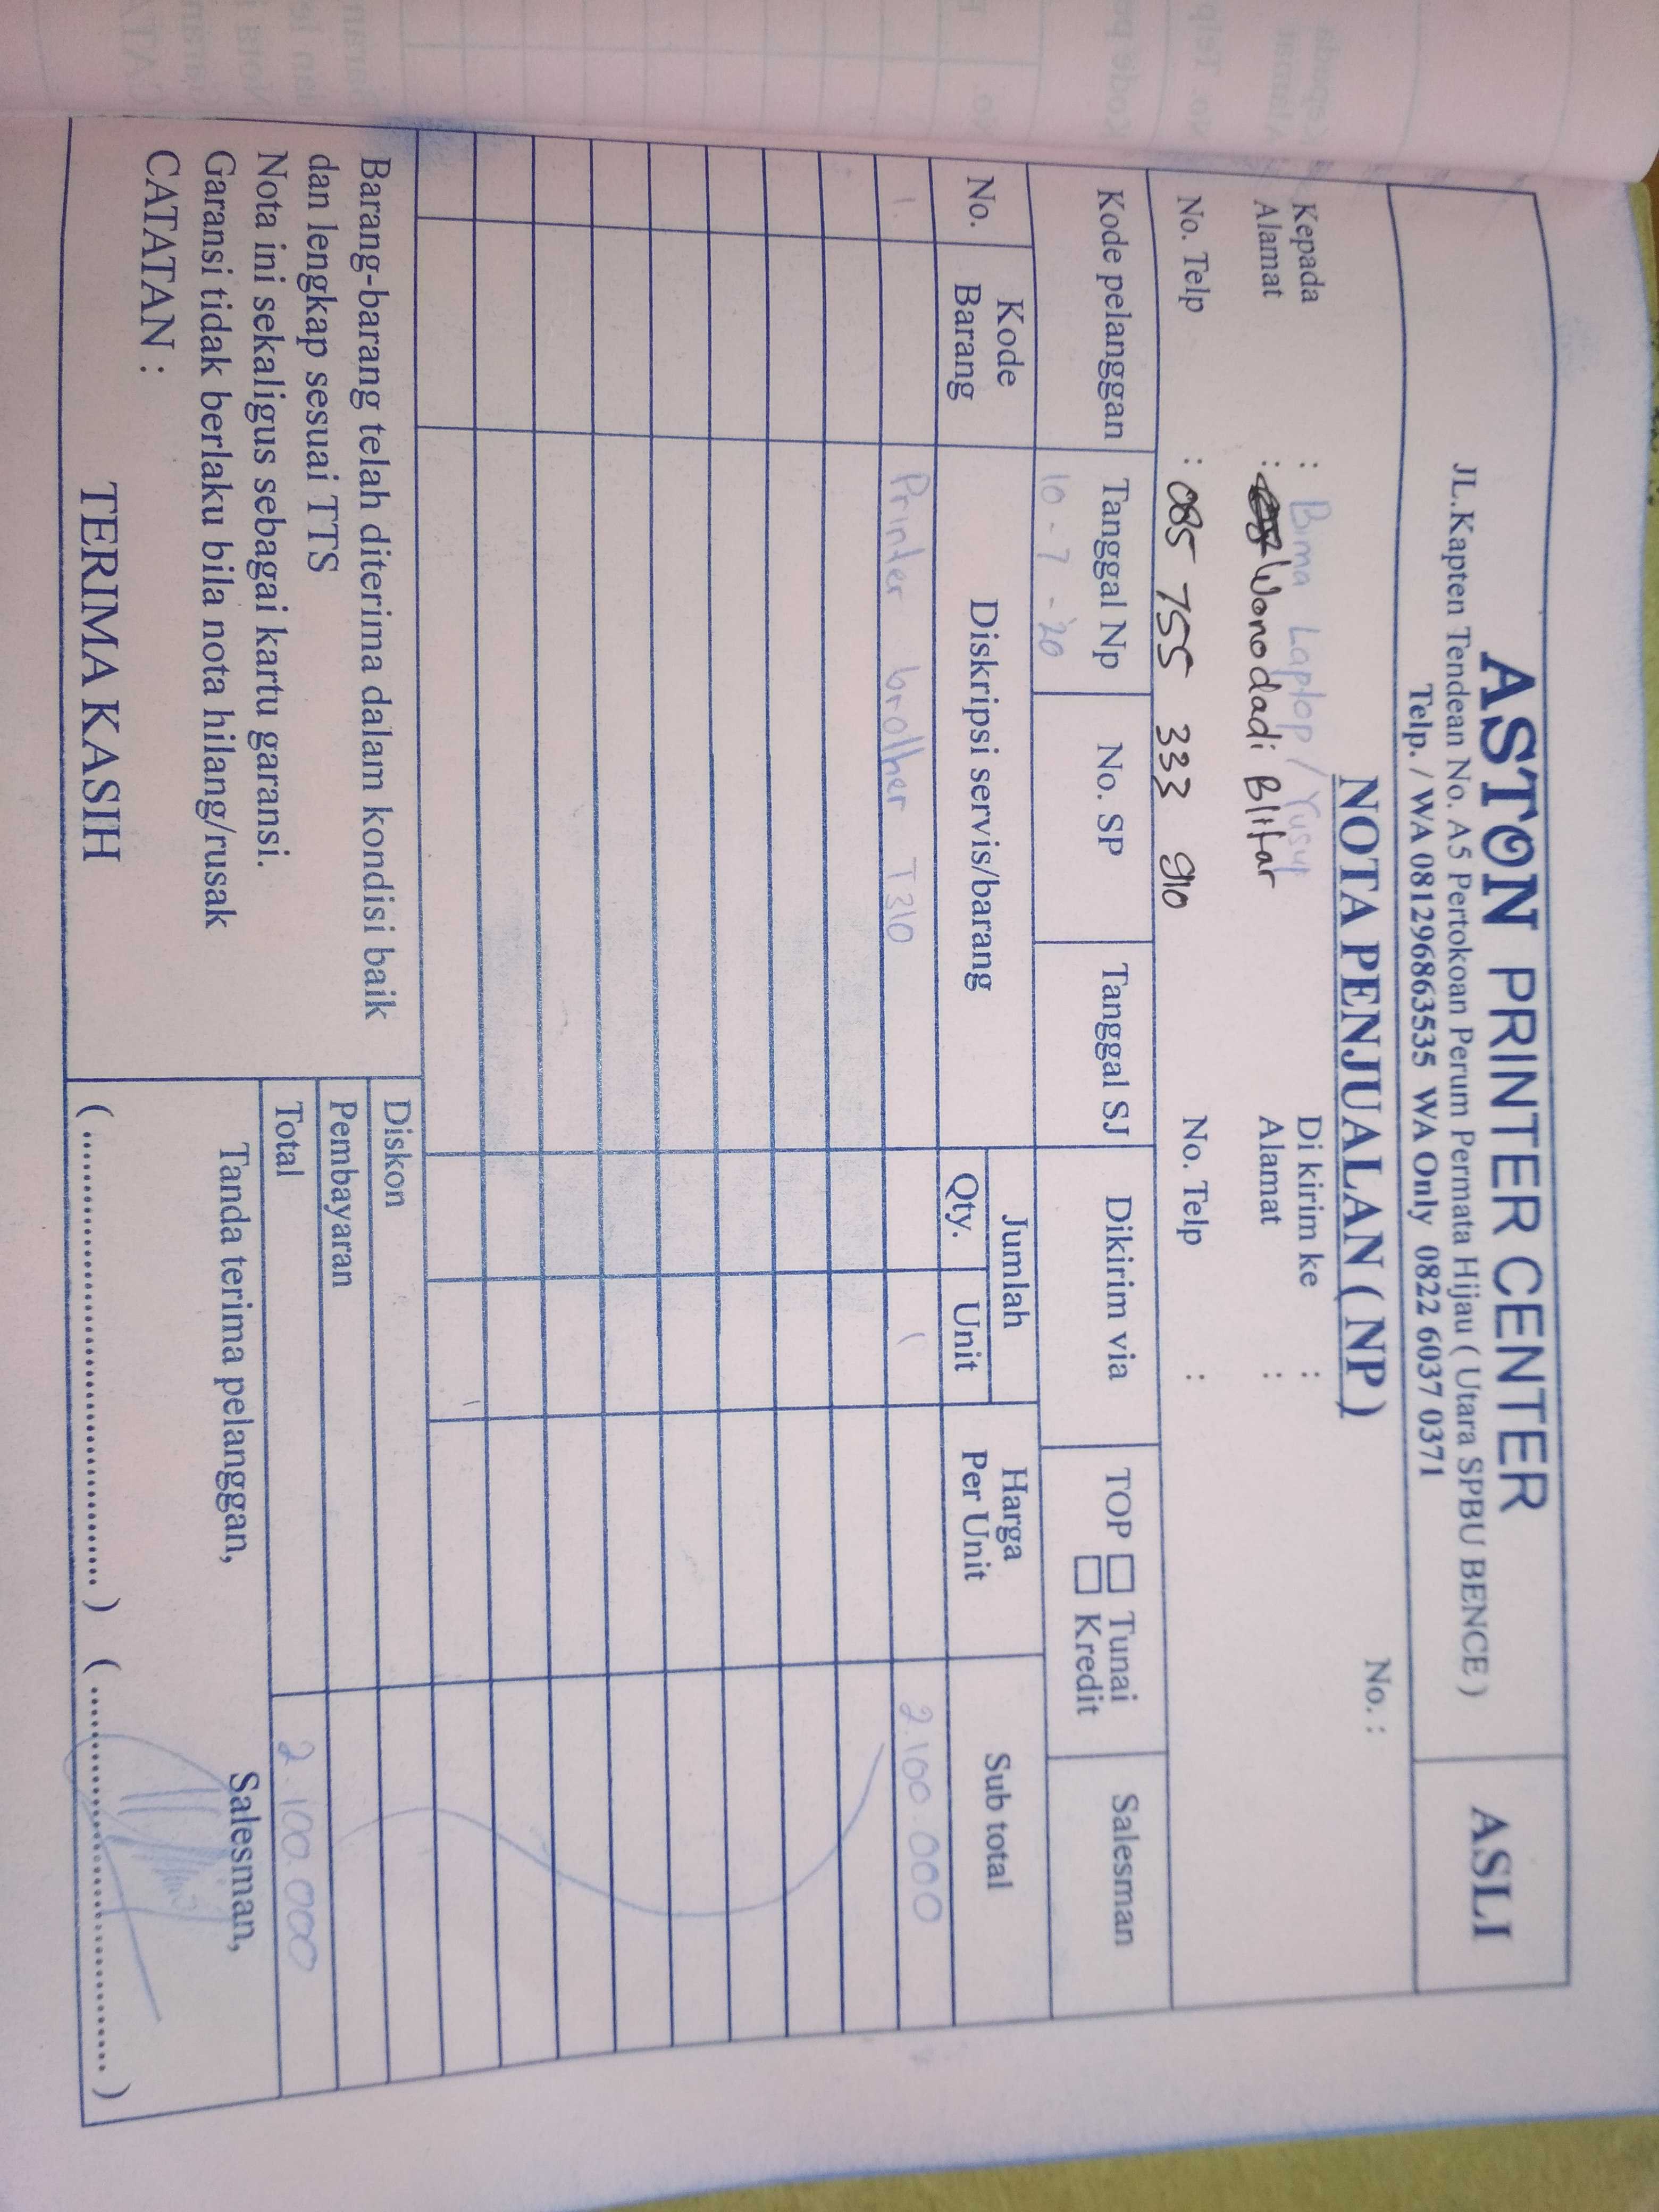 ASTON PRINTER CENTER
ASLI
JL.Kapten Tendean No. A5 Pertokoan Perum Permata Hijau ( Utara SPBU BENCE )
Telp. / WA 081296863535 WA Only 0822 6037 0371
NOTA PENJUALAN ( NP )
No. :
Kepada : Bima Laptop / Yusuf
Di kirim ke :
Alamat : Wonodadi Blitar
Alamat :
No. Telp : 085 755 333 910
No. Telp :
Kode pelanggan Tanggal Np No. SP Tanggal SJ Dikirim via TOP Tunai Kredit Salesman
10 - 7 - '20
No. Kode Barang Diskripsi servis/barang Jumlah Qty. Unit Harga Per Unit Sub total
1. Printer brother T310 1 2.100.000
Barang-barang telah diterima dalam kondisi baik
dan lengkap sesuai TTS
Nota ini sekaligus sebagai kartu garansi.
Garansi tidak berlaku bila nota hilang/rusak
CATATAN :
TERIMA KASIH
Diskon
Pembayaran
Total 2.100.000
Tanda terima pelanggan, Salesman,
( .................................... ) ( .................................... )